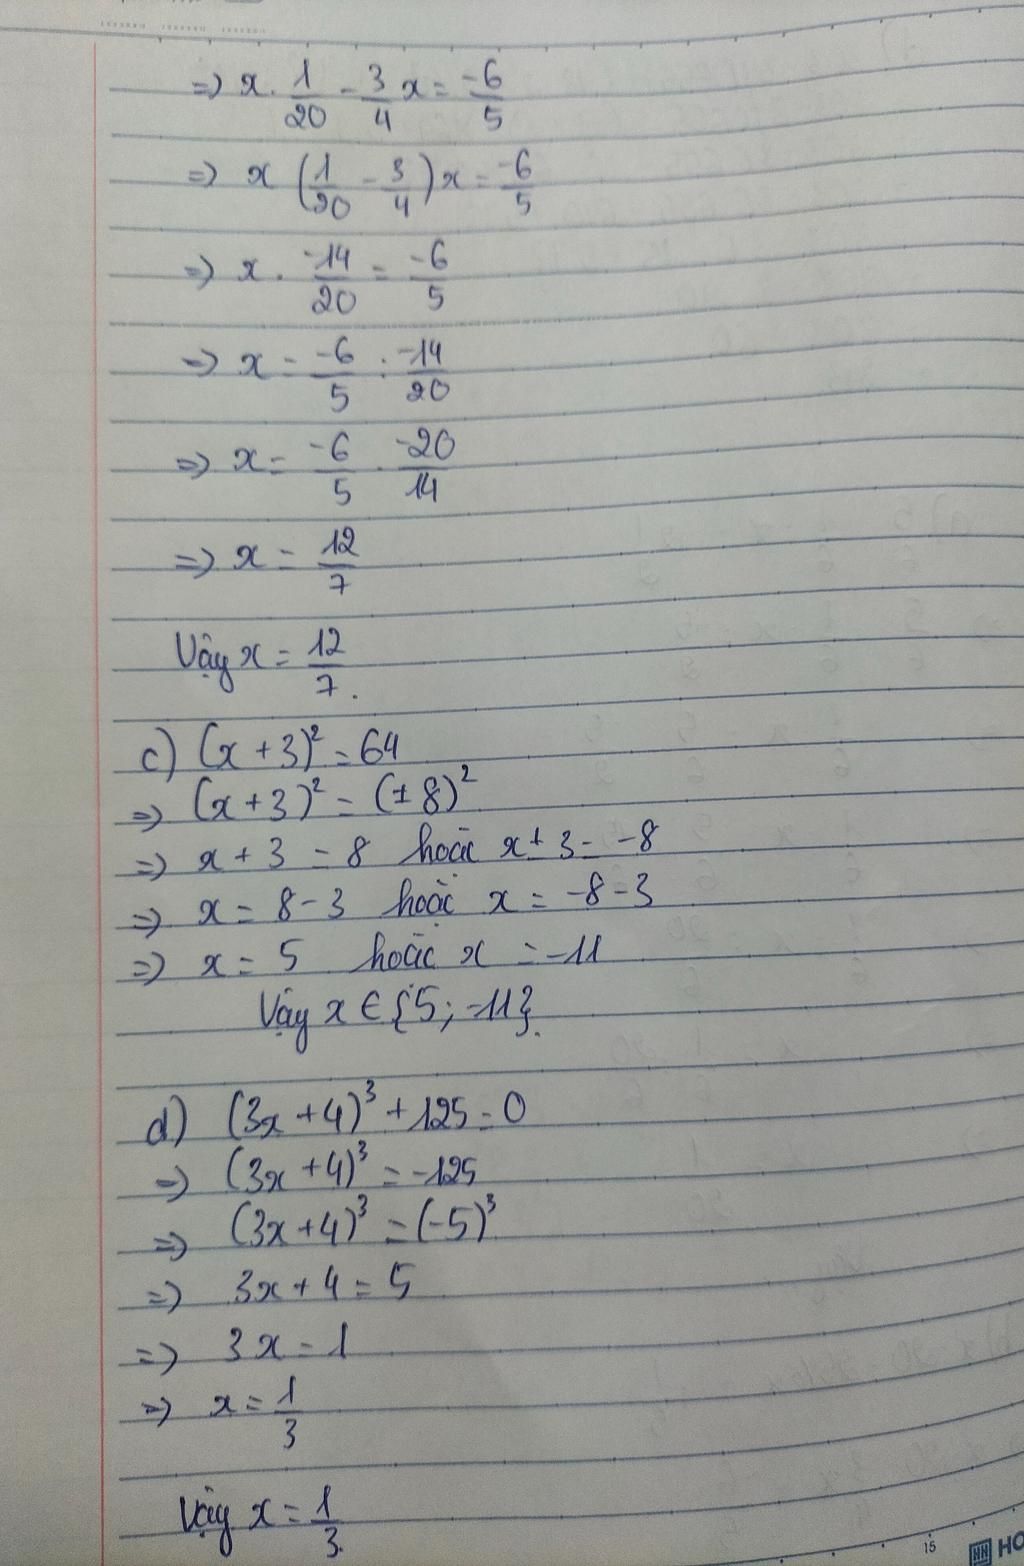 => x . 1/20 - 3/4 x = -6/5
=> x (1/20 - 3/4) x = -6/5
=> x . -14/20 = -6/5
=> x = -6/5 : -14/20
=> x = -6/5 . -20/14
=> x = 12/7
Vậy x = 12/7.
c) (x + 3)² = 64
=> (x + 3)² = (± 8)²
=> x + 3 = 8 hoặc x + 3 = -8
=> x = 8 - 3 hoặc x = -8 - 3
=> x = 5 hoặc x = -11
Vậy x ∈ {5; -11}.
d) (3x + 4)³ + 125 = 0
=> (3x + 4)³ = -125
=> (3x + 4)³ = (-5)³
=> 3x + 4 = 5
=> 3x = 1
=> x = 1/3
Vậy x = 1/3.
15